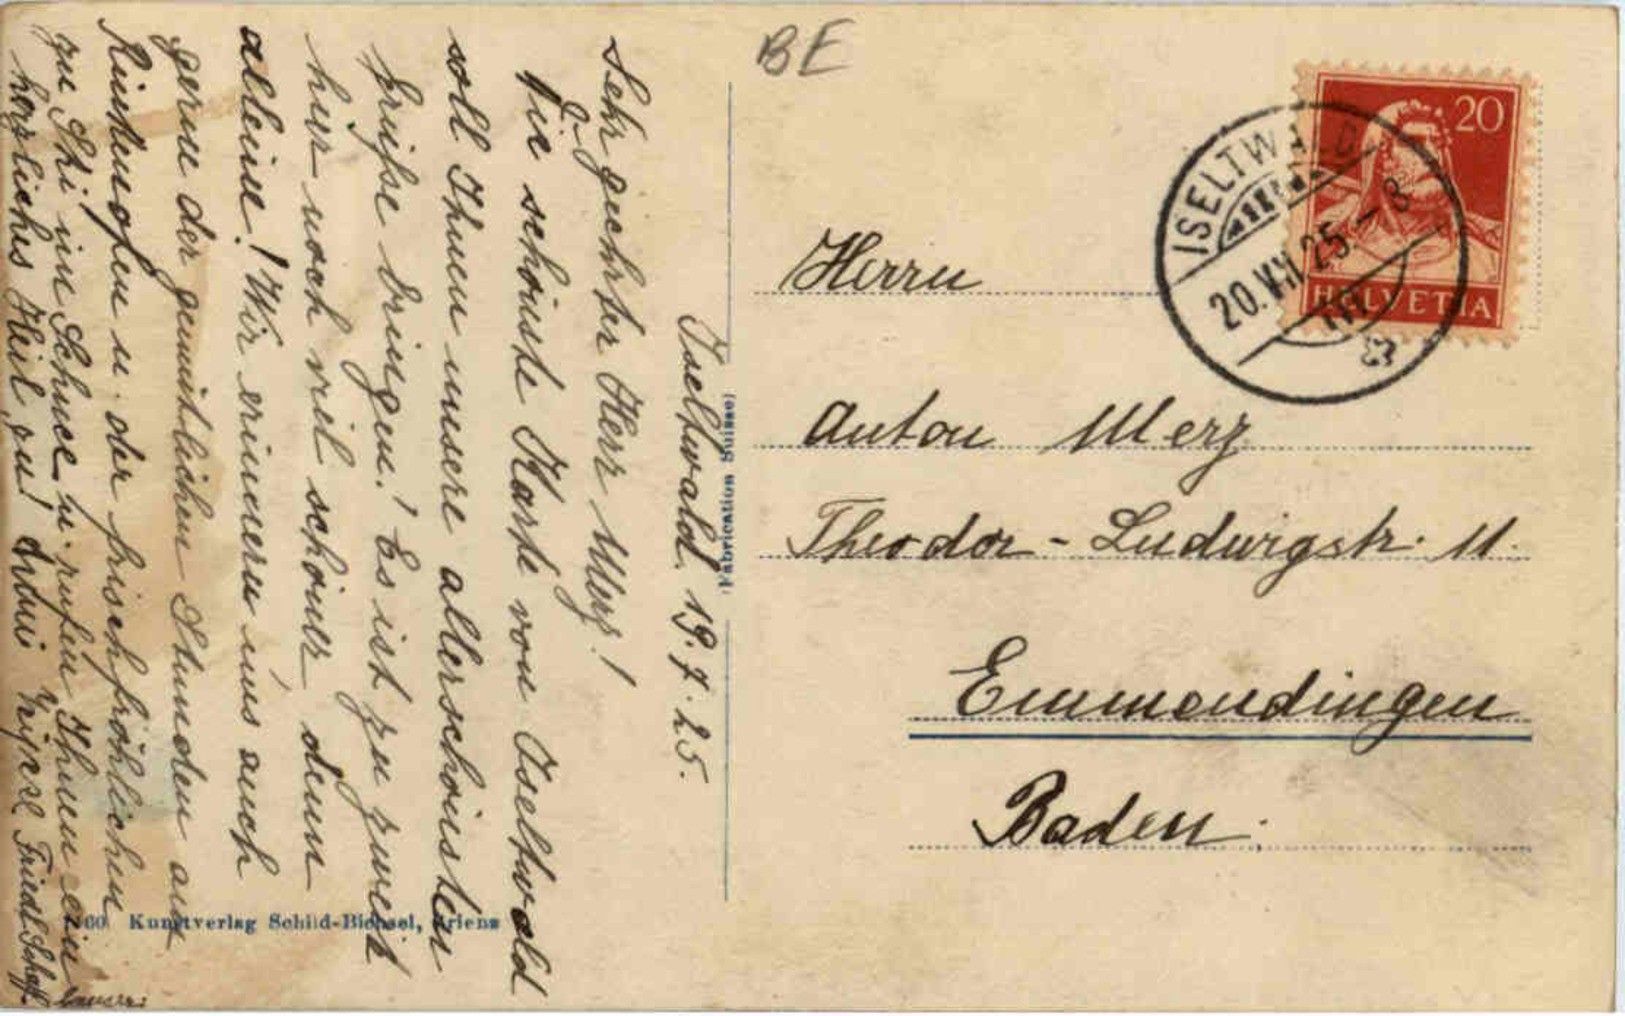 BE
20
HELVETIA
ISELTWALD
20.VII.25.-8
Herrn
Anton Merz
Theodor-Ludwigstr. 11.
Emmendingen
Baden.
Fabrication Suisse
Iseltwald, 19.7.25.
Sehr geehrter Herr Merz!
Die schönste Karte von Iseltwald
soll Ihnen unsere allerschönsten
Grüsse bringen! Es ist zu zweit
hier noch viel schöner denn
alleine! Wir erinnern uns auch
gerne der gemütlichen Stunden am
u. der frischfröhlichen
zu Ski im Schnee u. rufen Ihnen ein
herzliches Heil zu! Friedl
Kunstverlag Schild-Bichsel, Brienz